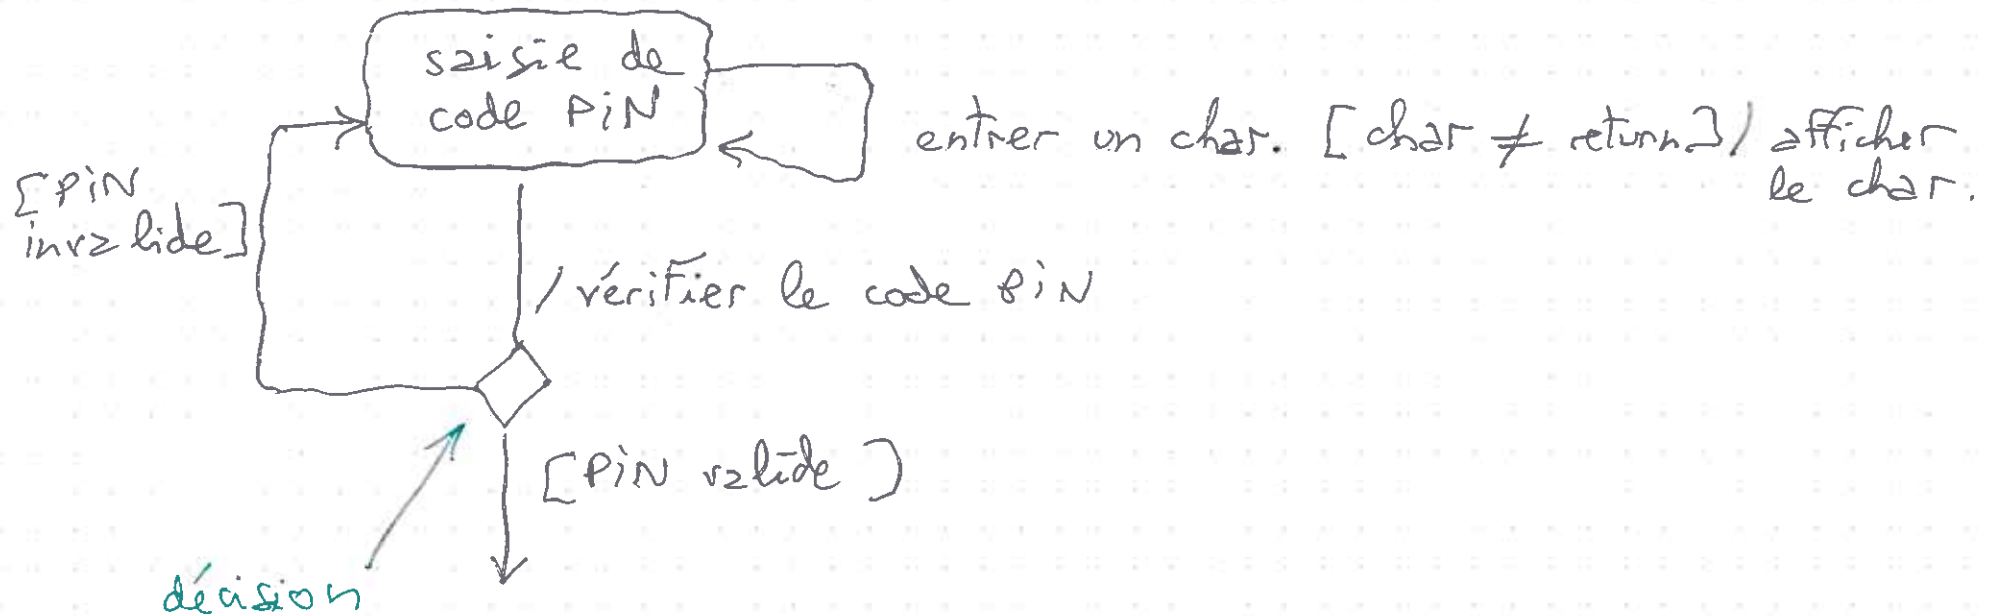 saisie de
code PiN
entrer un char. [char ≠ return] / afficher
le char.
[PiN
invalide]
/ vérifier le code PiN
[PiN valide]
décision